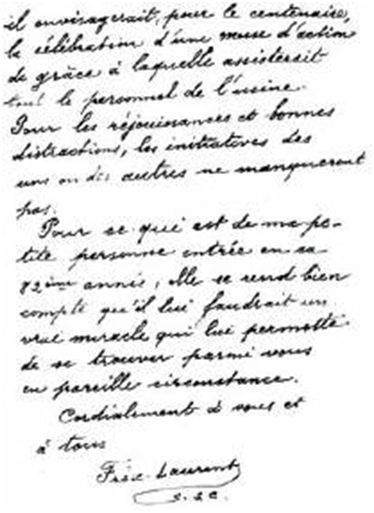 il envisagerait, pour le centenaire,
la célébration d'une messe d'action
de grâce à laquelle assisterait
tout le personnel de l'usine.
Pour les réjouissances et bonnes
distractions, les initiatives des
uns ou des autres ne manqueront
pas.
Pour ce qui est de ma pe-
tite personne entrée en sa
82ème année, elle se rend bien
compte qu'il lui faudrait un
vrai miracle qui lui permette
de se trouver parmi vous
en pareille circonstance.
Cordialement à vous et
à tous
Laurent